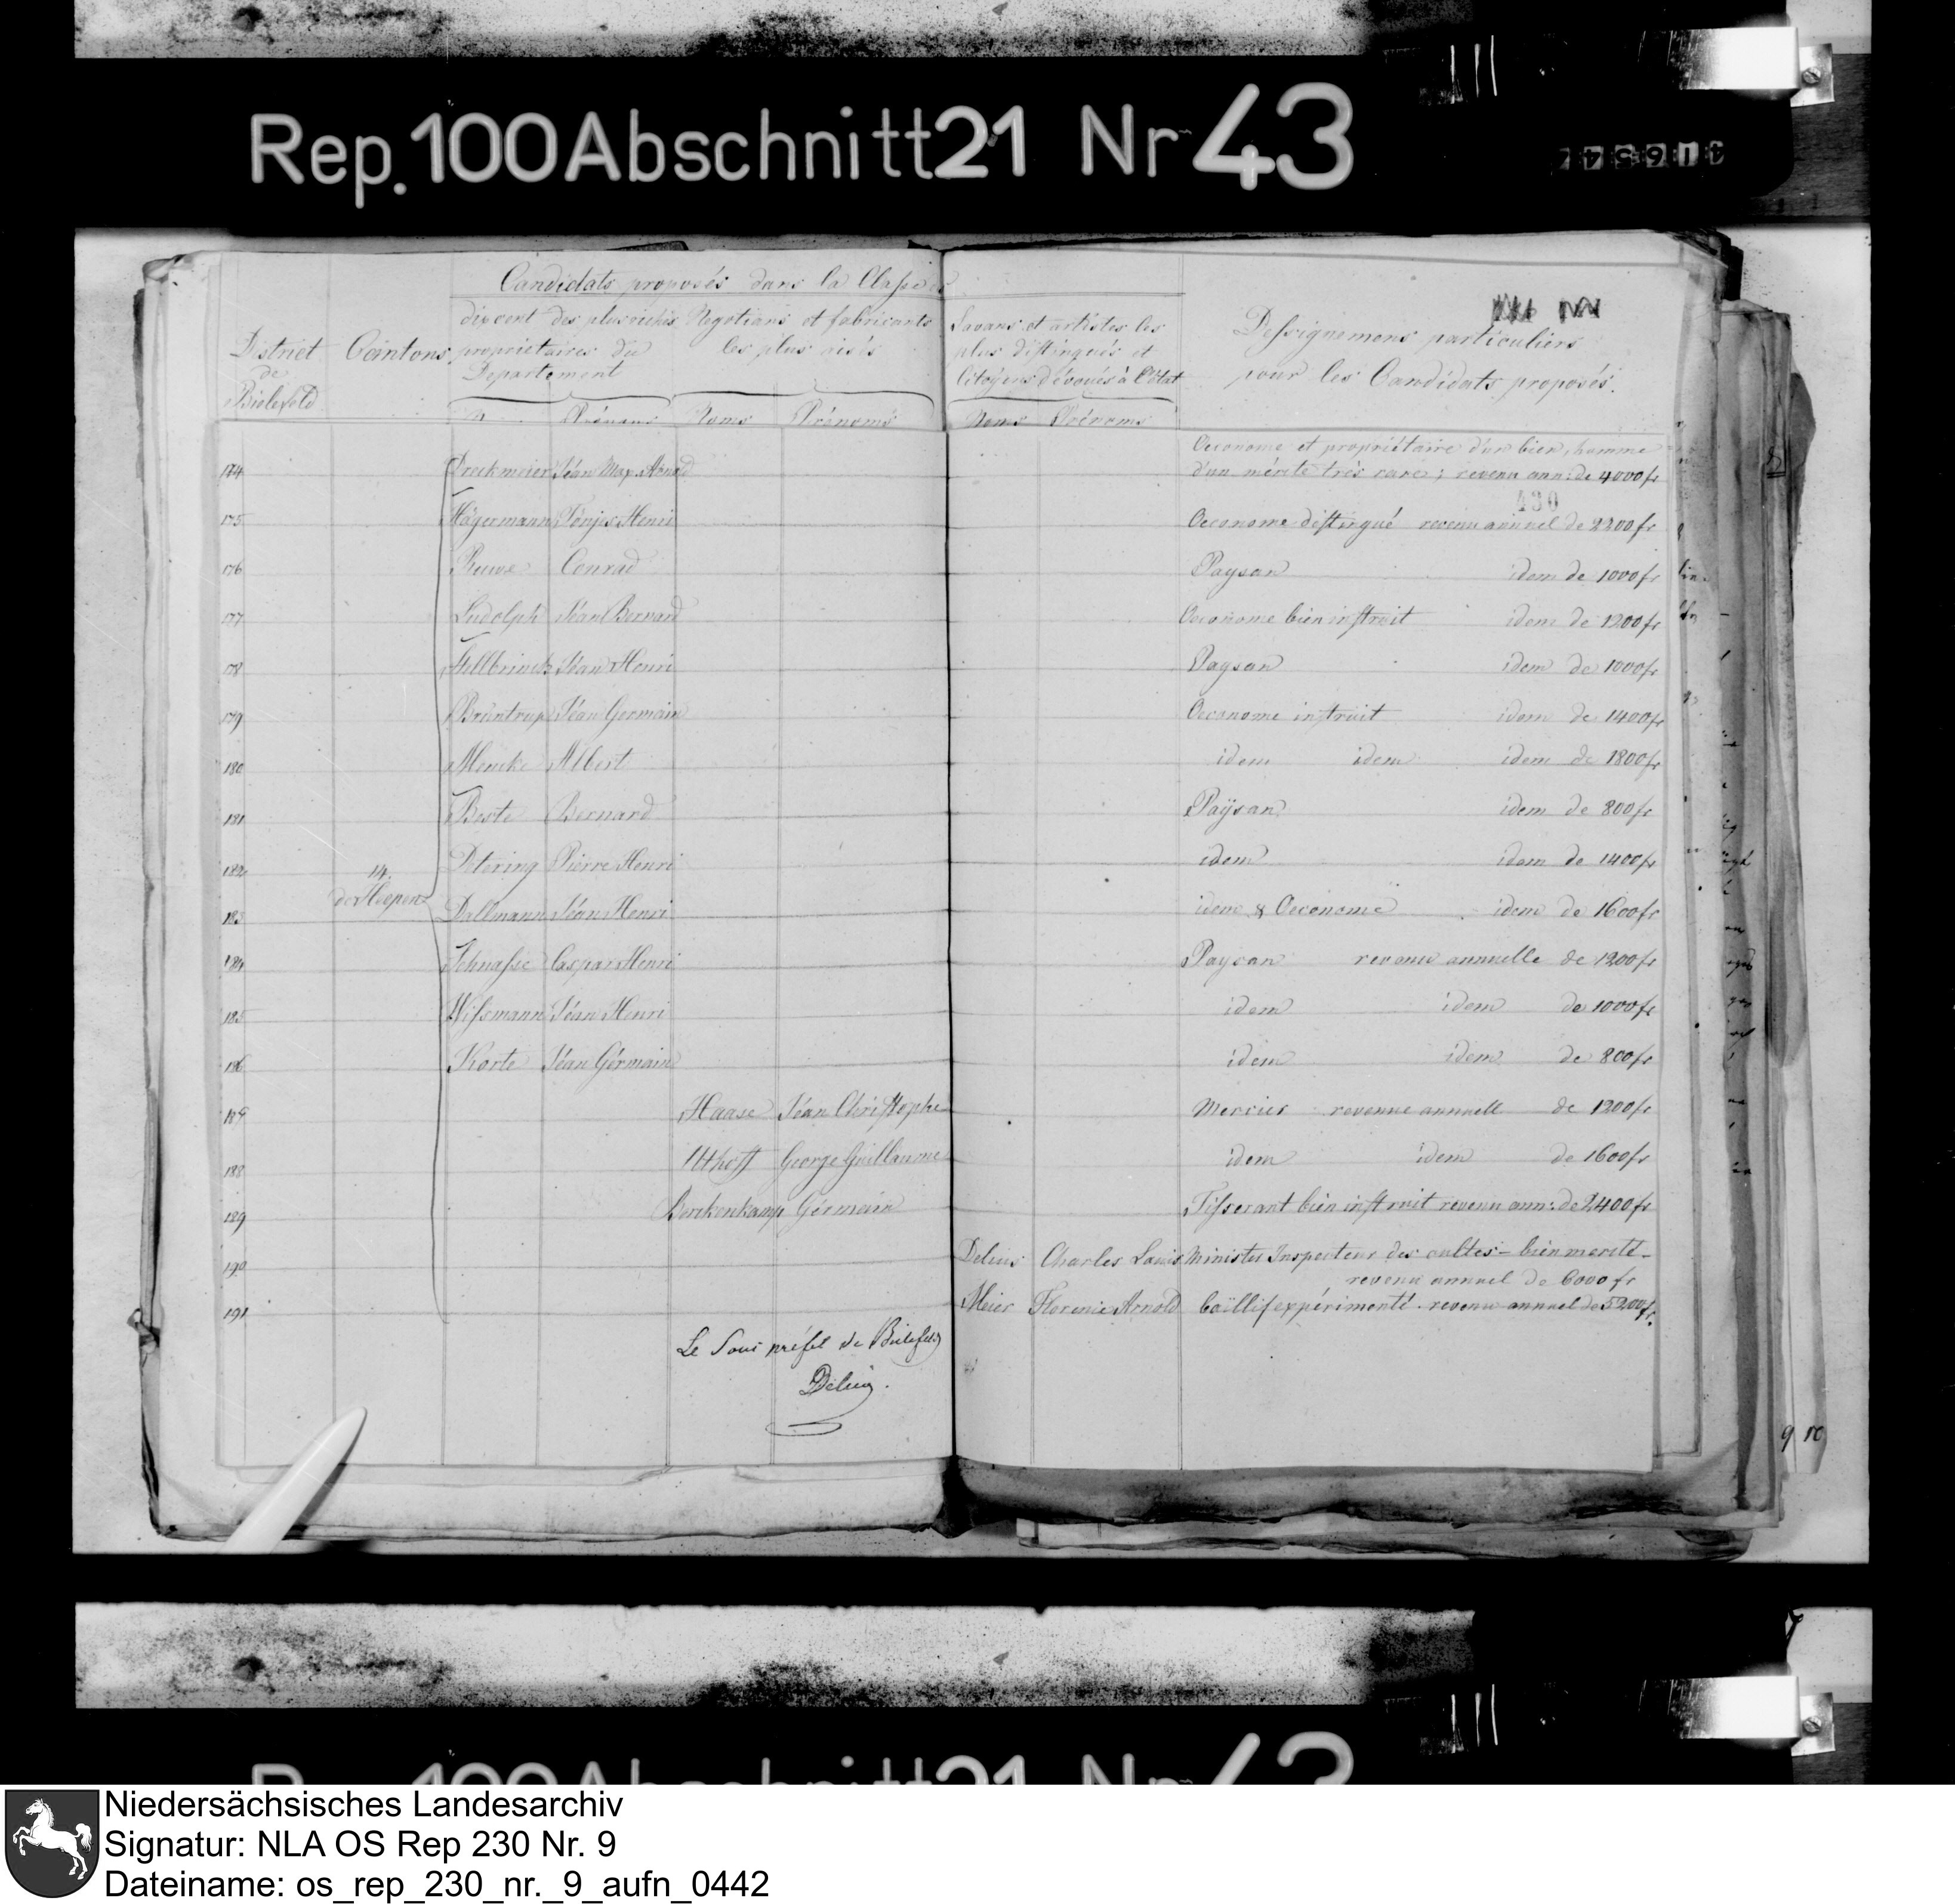 Rep. 100 Abschnitt 21 Nr 43
Candidats proposés dans la Classe de
District de Bielefeld
Cantons
dix cent des plus riches propriétaires du Departement
Negotians et fabricants les plus aisés
Savans et artistes les plus distingués et citoyens dévoués à l'état
Dessignemens particuliers pour les Candidats proposés.
Prénoms Noms Prénoms Noms Prénoms
Oeconome et propriétaire d'un bien, homme
174 Dreckmeier Jéan Max. Arnold d'un mérite très rare; revenu ann: de 4000 fr
430
175 Hagermann Tönjes Henri Oeconome distingué revenu annuel de 2200 fr
176 Reuwe Conrad Paysan idem de 1000 fr
177 Ludolph Jéan Bernard Oeconome bien instruit idem de 1200 fr
178 Hellbrinck Jéan Henri Paysan idem de 1000 fr
179 Brüntrup Jéan Germain Oeconome instruit idem de 1400 fr
180 Mencke Albert idem idem idem de 1800 fr
181 Beste Bernard Paÿsan idem de 800 fr
182 Detering Pierre Henri idem idem de 1400 fr
14.
de Heepen
183 Dallmann Jéan Henri idem & Oeconome idem de 1600 fr
184 Schnasse Caspar Henri Paysan revenu annuelle de 1200 fr
185 Wissmann Jéan Henri idem idem de 1000 fr
186 Korte Jéan Gérmain idem idem de 800 fr
187 Haase Jéan Christophe Mercier revenue annuell de 1200 fr
188 Uthoff George Guillaume idem idem de 1600 fr
189 Berckenkamp Gérmain Tisserant bien instruit revenu ann: de 2400 fr
190 Delius Charles Louis Ministre Inspecteur des cultes - bien merité -
revenu annuel de 6000 fr
191 Meier Florenie Arnold baillif expérimenté - revenu annuel de 5200 fr.
Le Sous préfet de Bielefeld
Delius.
9 10
Niedersächsisches Landesarchiv
Signatur: NLA OS Rep 230 Nr. 9
Dateiname: os_rep_230_nr._9_aufn_0442